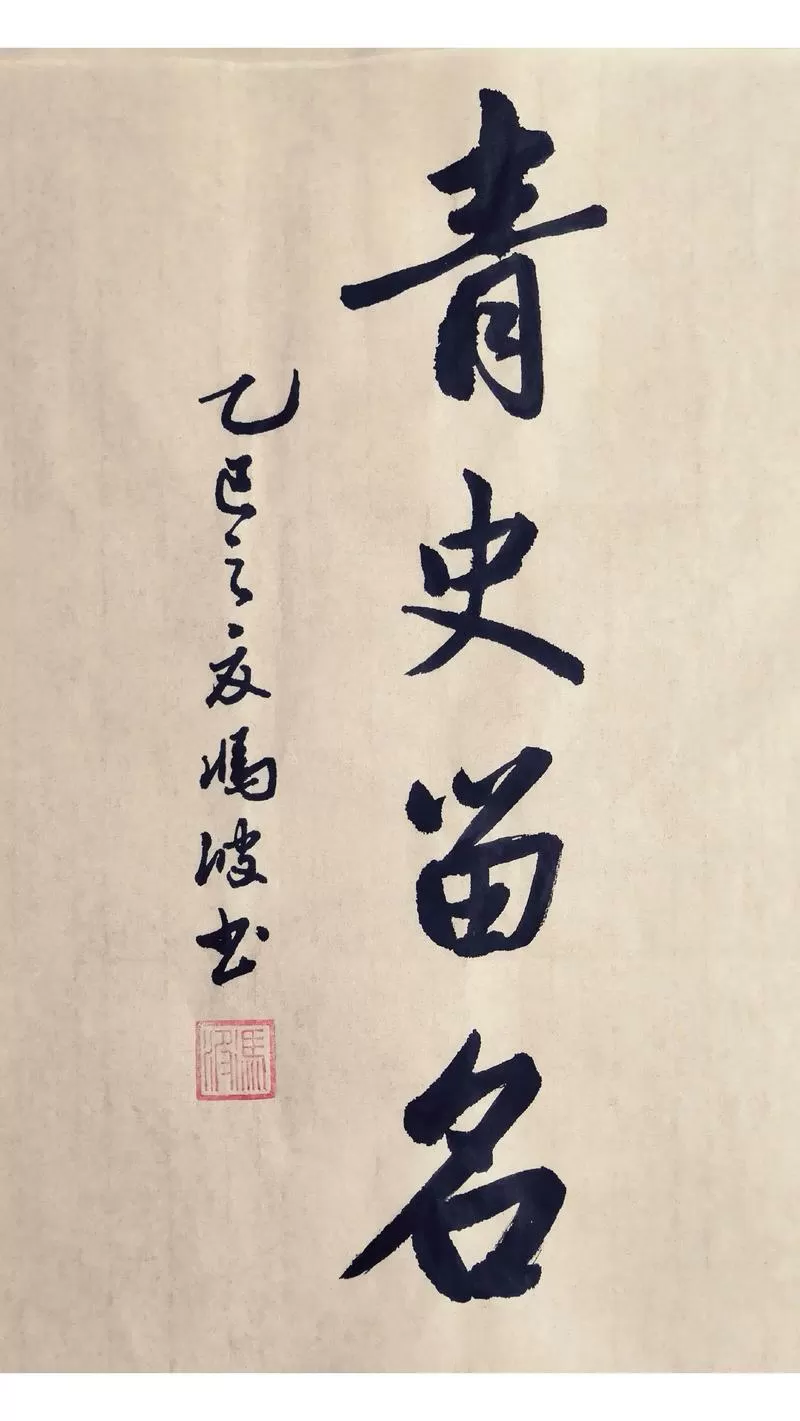 青史留名
乙巳之夏馮波书
馮波